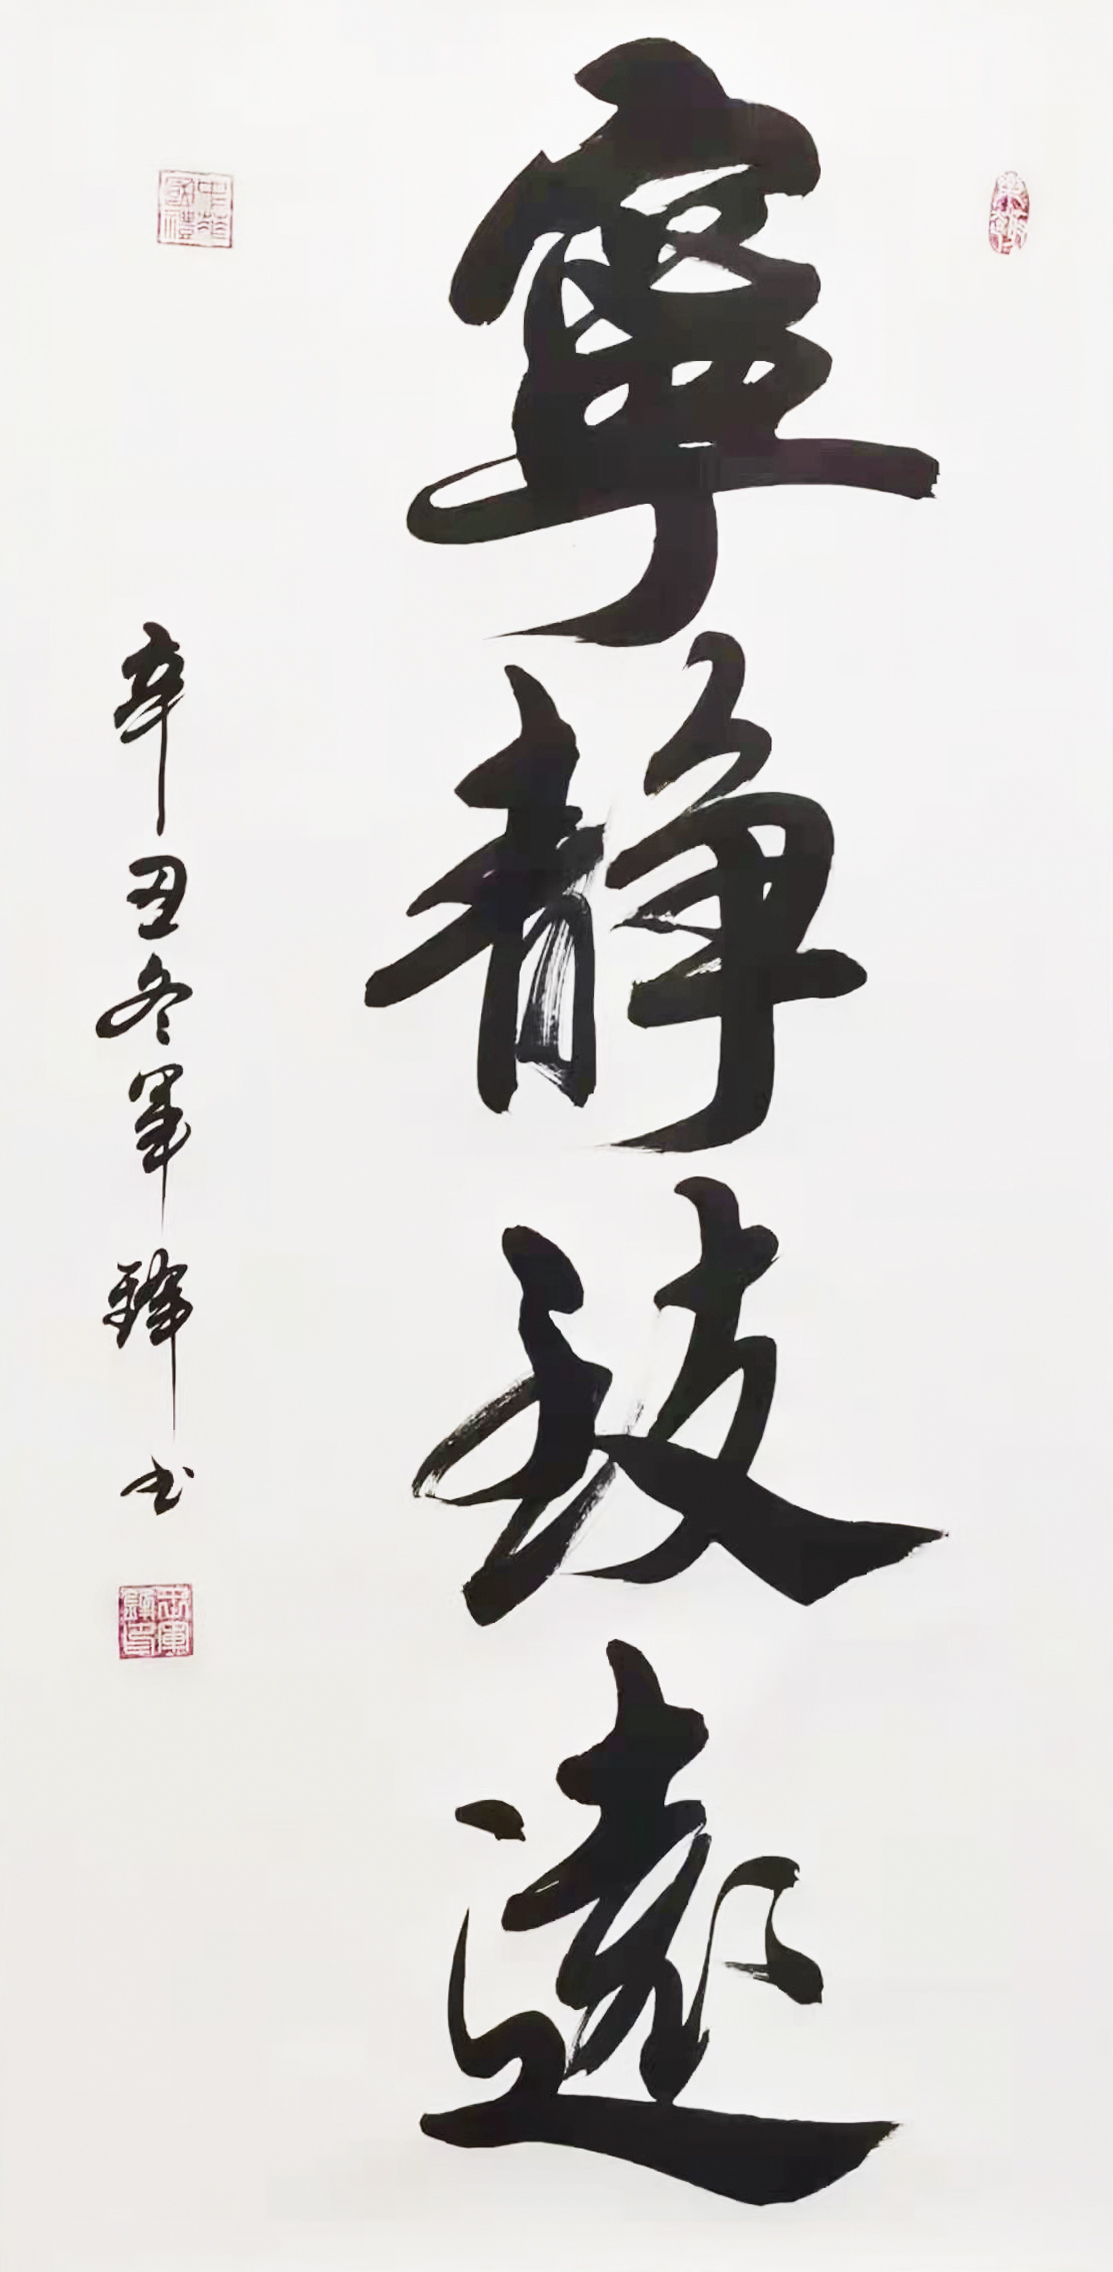 寧靜致遠
辛丑冬軍鋒书